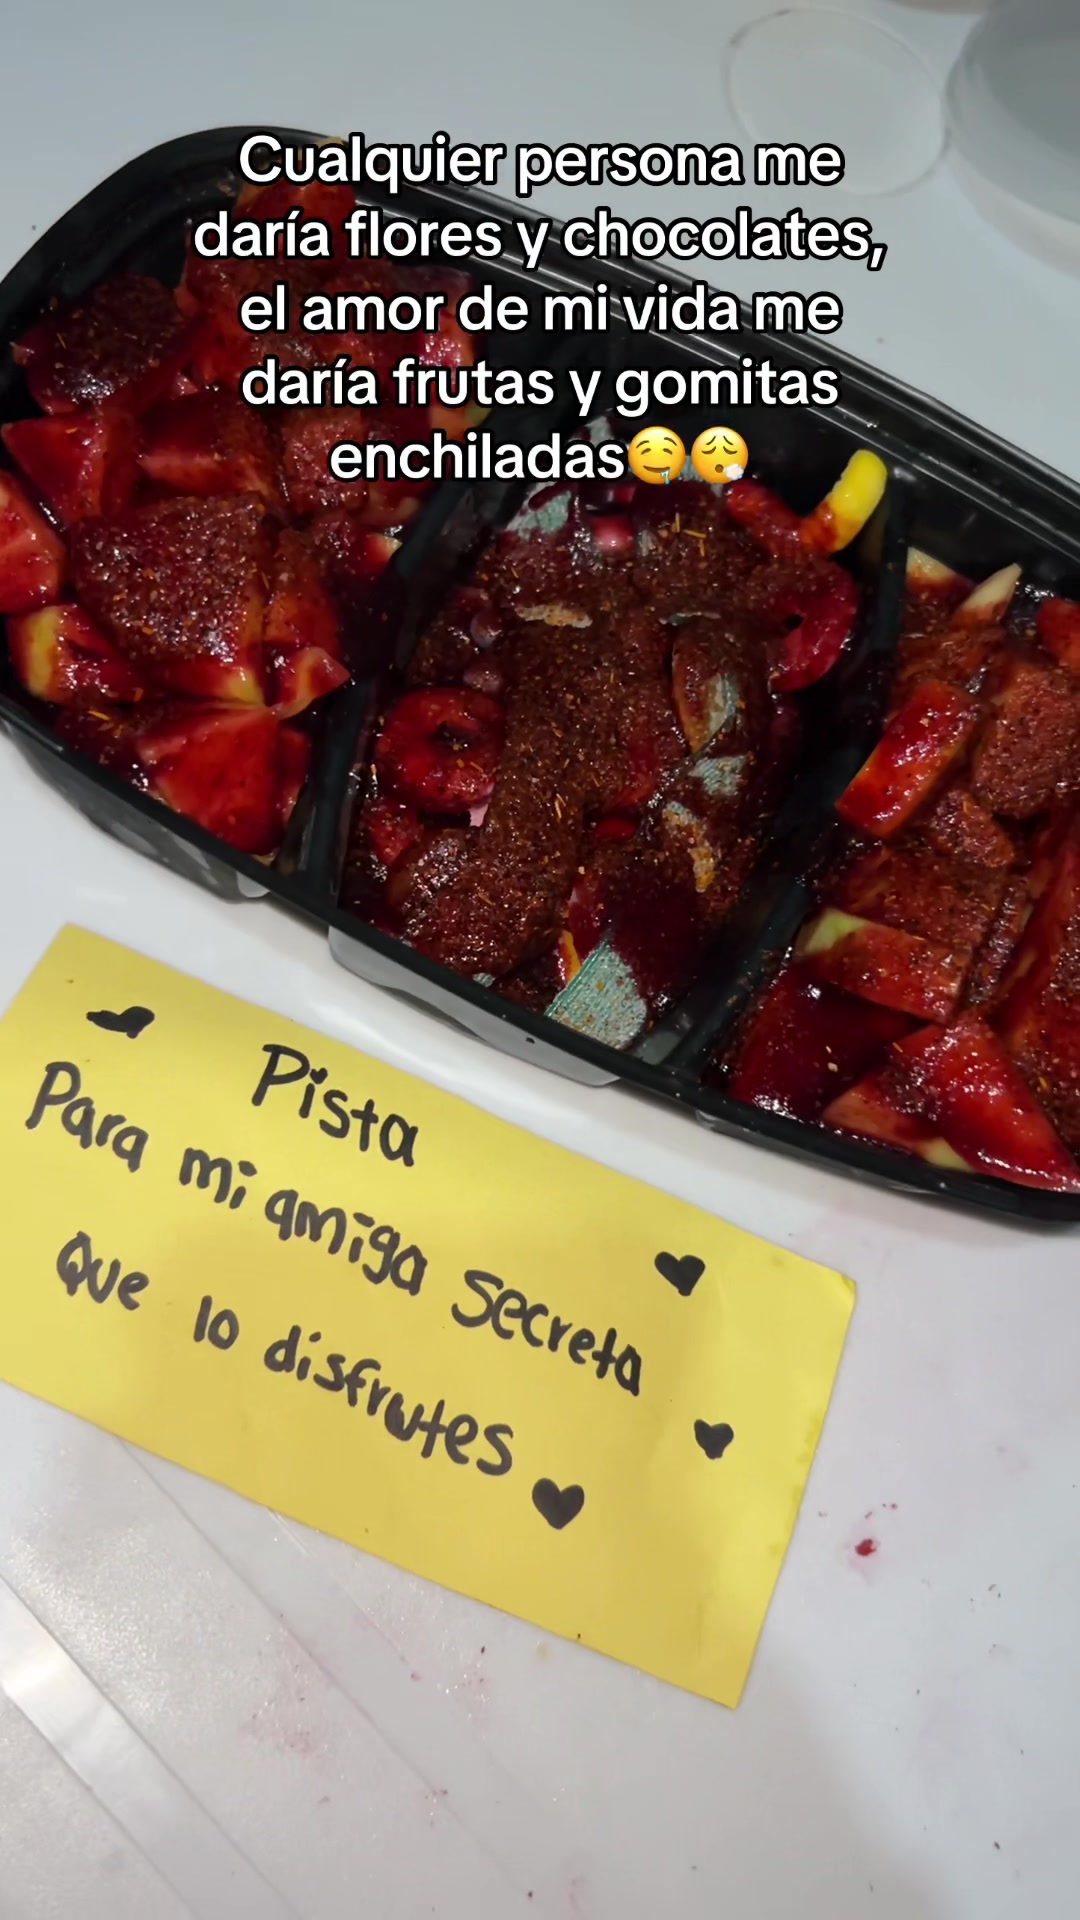 Cualquier persona me
daría flores y chocolates,
el amor de mi vida me
daría frutas y gomitas
enchiladas🤤😮‍💨
Pista
Para mi amiga secreta
Que lo disfrutes